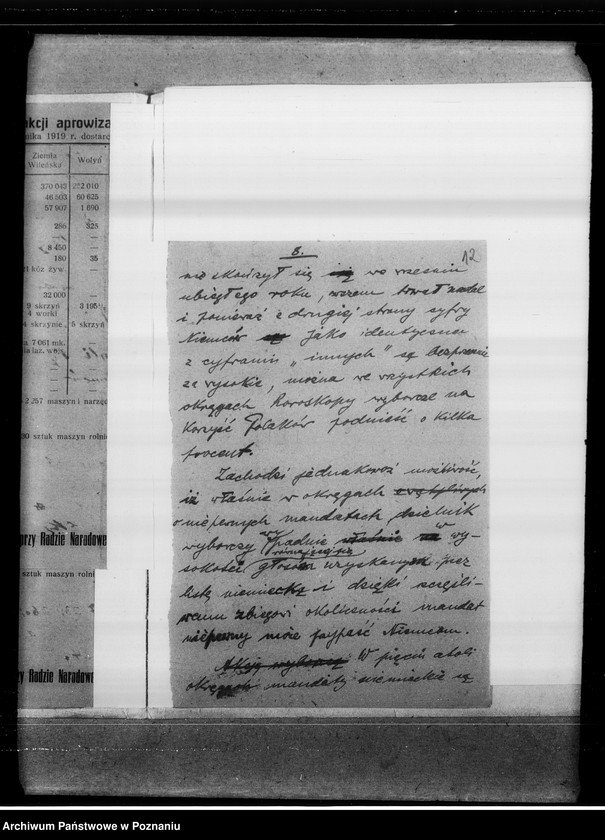 kcji aprowiza
nika 1919 r. dostarc
Ziemia Wileńska
Wołyń
370 043 222 010
46 503 60 625
57 907 1 690
286 325
—
8 450 —
180 35
t kóz żyw. —
32 000 —
9 skrzyń 3 195
4 worki
4 skrzynie 5 skrzyń
a 7 061 mk. —
la laz. woj.
2 257 maszyn i narzęd
30 sztuk maszyn rolni
przy Radzie Narodowe
sztuk maszyn rolni
zy Radzie Narodowe
8.
12
nie skończył się we wrześniu
ubiegłego roku, wszem trwał nadal
i ponieważ z drugiej strony cyfry
Niemców jako identyczne
z cyframi „innych" są bezprawnie
za wysokie, można we wszystkich
okręgach horoskopy wyborcze na
korzyść Polaków podnieść o kilka
procent.
Zachodzi jednakowoż możliwość,
iż właśnie w okręgach
o niepewnych mandatach, dzielnik
wyborczy wypadnie właśnie w wy-
sokości głosów uzyskanych przez
listę niemiecką i dzięki szczęśli-
wemu zbiegowi okoliczności mandat
niepewny może przypaść Niemcom.
Akcja wyborcza W pięciu atoli
okręgach mandaty niemieckie są
Archiwum Państwowe w Poznaniu